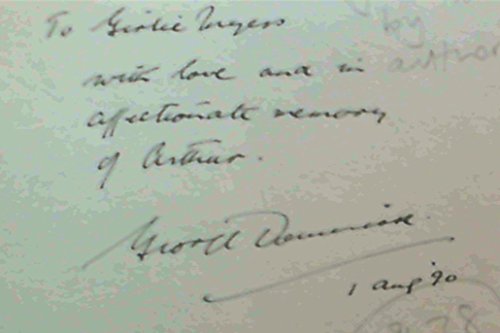 To Girlie Myers
by
author
with love and in
affectionate memory
of Arthur.
George
1 Aug '90